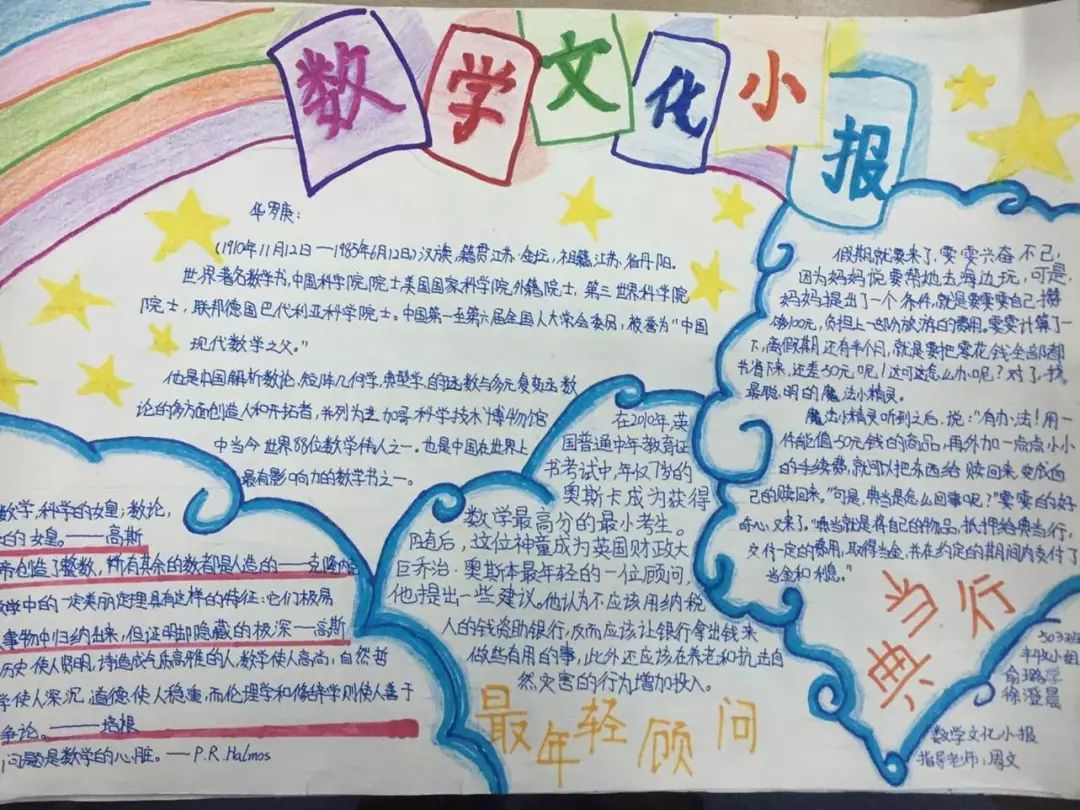 数学文化小报
华罗庚：
(1910年11月12日—1985年6月12日)汉族,籍贯江苏·金坛,祖籍江苏省丹阳.
世界著名数学书,中国科学院院士美国国家科学院外籍院士,第三世界科学院
院士,联邦德国巴代利亚科学院士,中国第一至第六届全国人大常会委员,被誉为“中国
现代数学之父。”
他是中国解析数论,矩阵几何学,典型学,的函数与多元复变函数
论的多方面创造人和开拓者,并列为芝加哥科学技术博物馆
中当今世界88位数学伟人之一。也是中国在世界上
最有影响力的数学书之一。
数学,科学的女皇;数论,
的女皇。——高斯
帝创造了整数,所有其余的数都是人造的——克隆内
学中的一定美丽定理具有这样的特征:它们极易
事物中归纳出来,但证明却隐藏的极深—高斯
历史使人贤明,诗造成气质高雅的人,数学使人高尚,自然哲
学使人深沉,道德使人稳重,而伦理学和修辞学则使人善于
争论。———培根
问题是数学的心脏。—P.R.Halmos
在2010年,英
国普通中年教育证
书考试中,年仅7岁的
奥斯卡成为获得
数学最高分的最小考生。
随后,这位神童成为英国财政大
臣乔治·奥斯本最年轻的一位顾问,
他提出一些建议。他认为不应该用纳税
人的钱资助银行,反而应该让银行拿出钱来
做些有用的事,此外还应该在养老和抗击自
然灾害的行为增加投入。
最年轻顾问
假期就要来了,雯雯兴奋不已,
因为妈妈说要带她去海边玩,可是,
妈妈提出了一个条件,就是要雯雯自己攒
够100元,负担上一部分旅游的费用。雯雯计算了一
下,离假期还有半个月,就是要把零花钱全部都
节省下来,还差50元呢!这可这怎么办呢?对了,找
最聪明的魔法小精灵。
魔法小精灵听到之后,说:“有办法!用一
件能值50元钱的商品,再外加一点点小小
的手续费,就可以把东西给赎回来变成自
己的赎回来。”可是,典当是怎么回事呢?”雯雯的好
奇心又来了。“典当就是将自己的物品,抵押给典当行,
交付一定的费用,取得当金,并在约定的期间内支付了
当金和利息。”
典当行
503班
丰收小组
俞璐学
徐澄晨
数学文化小报
指导老师:周文